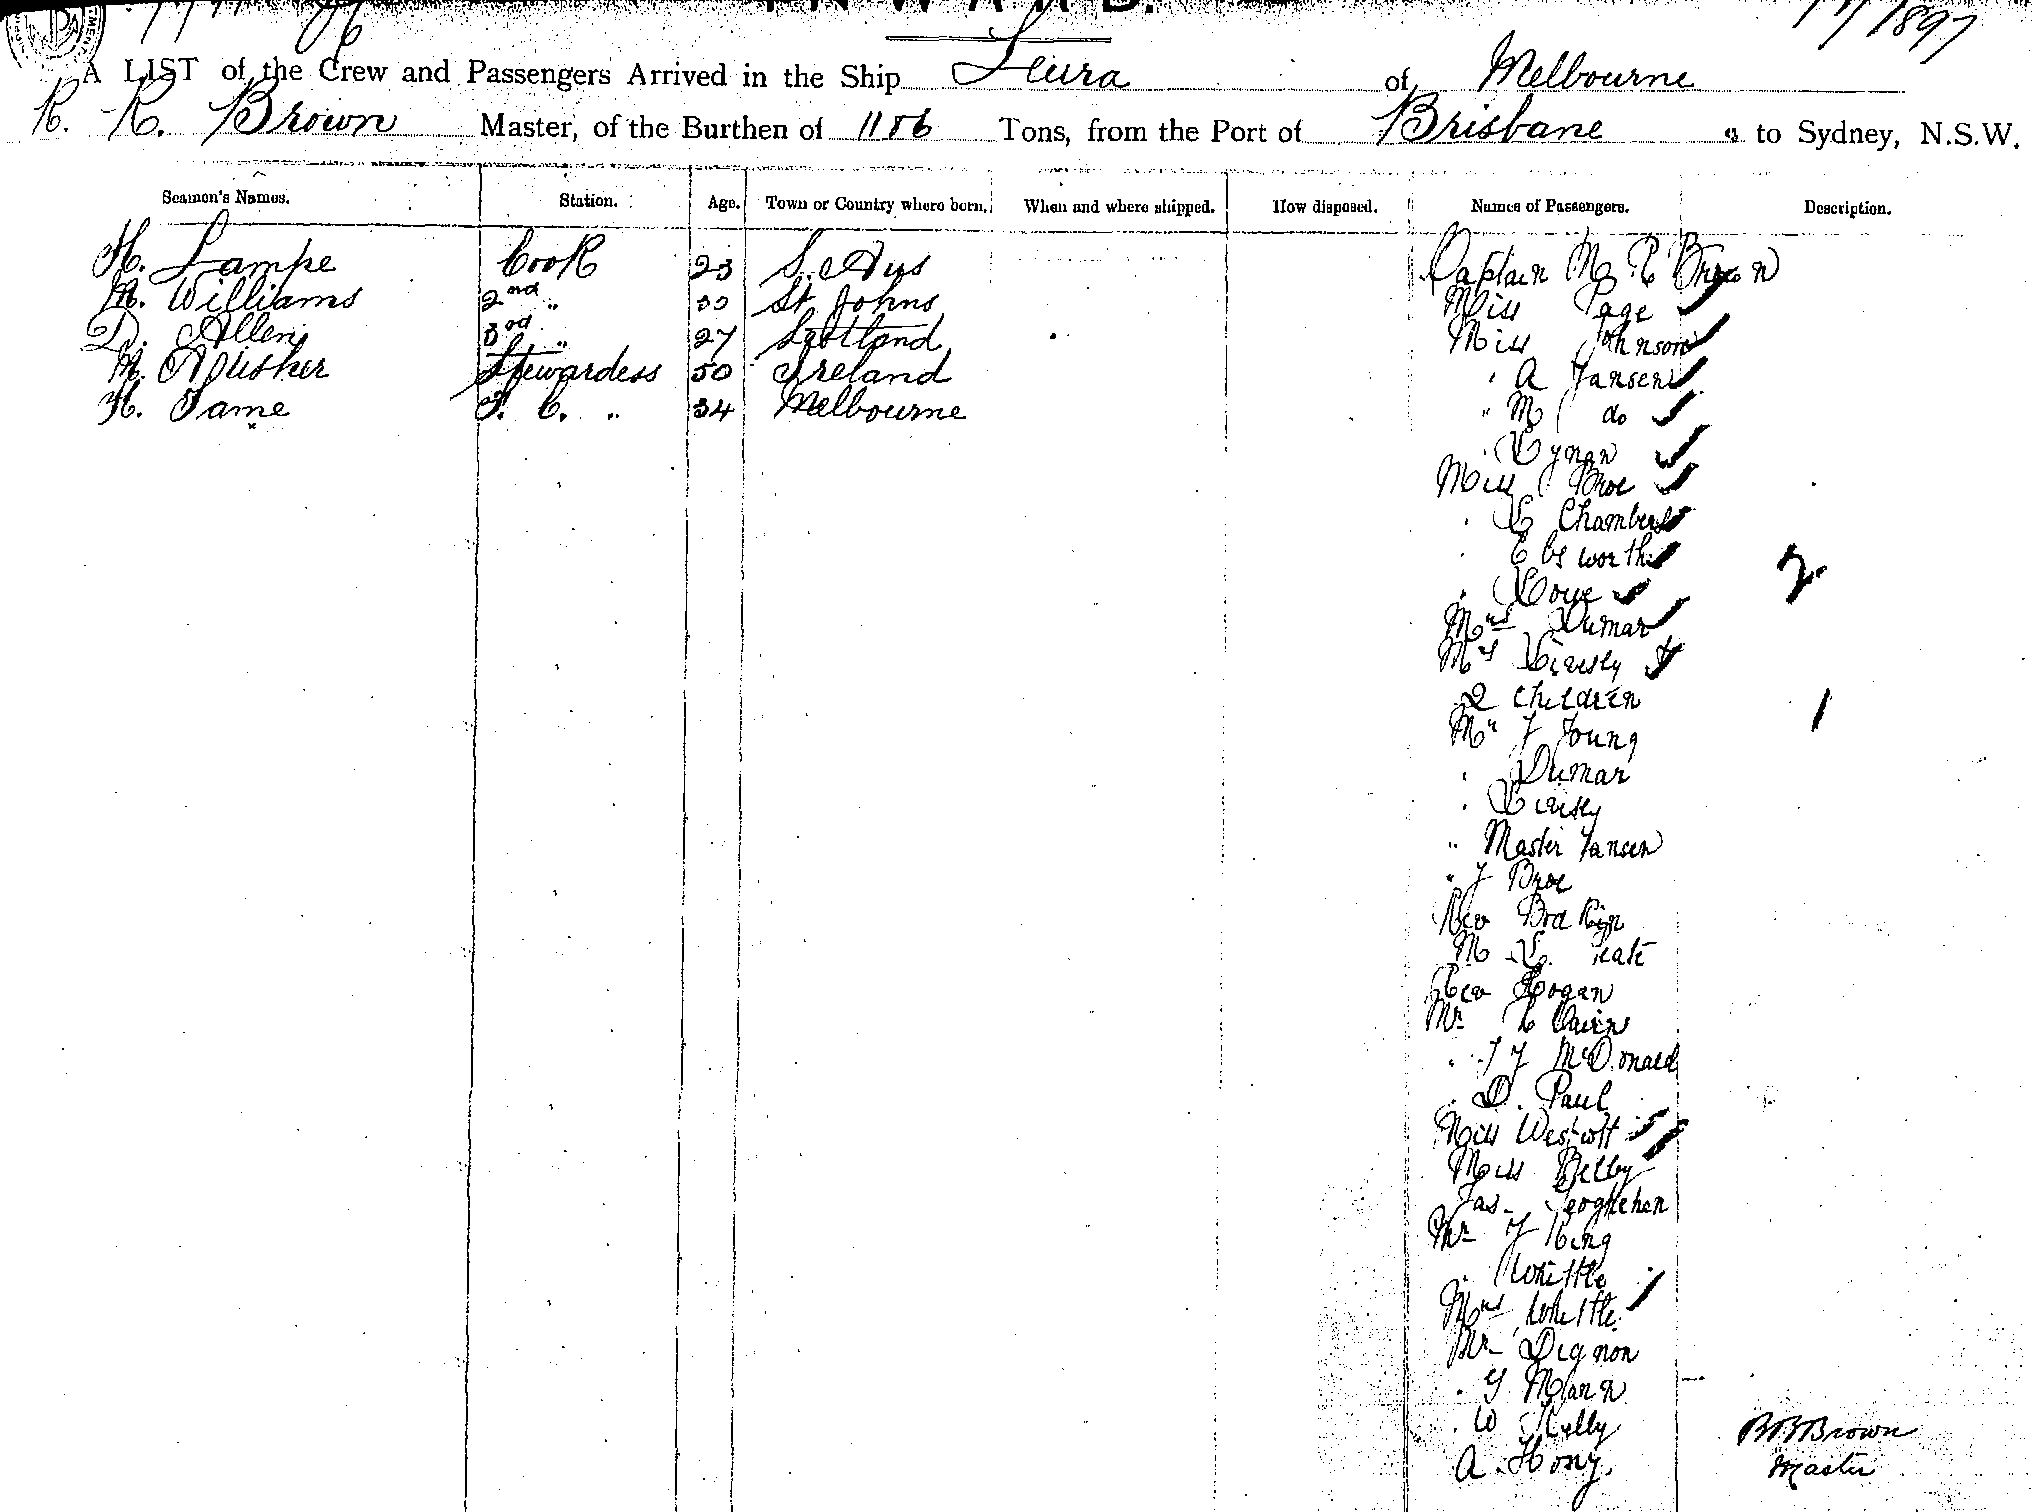 INWARD.
1897
A LIST of the Crew and Passengers Arrived in the Ship Leura of Melbourne
R. R. Brown Master, of the Burthen of 1186 Tons, from the Port of Brisbane to Sydney, N.S.W.
Seamen's Names. Station. Age. Town or Country where born. When and where shipped. How disposed. Names of Passengers. Description.
H. Lampe Cook 23 S. Aus Captain Brown
M. Williams 2nd " St Johns Miss Page
D. Allen 3rd " 27 Scotland Miss Johnson
M. Stewardess 50 Ireland " A Jansen
H. Tame F. C. " 34 Melbourne " M do
Miss Broe
Chambers
Ebsworth
2
Mrs Dumar
Mrs
2 children
1
Mr J Young
Dumar
" Master Jansen
" J Broe
Rev Bodkin
M
Rev Hogan
Mr Cairns
" J J McDonald
" D. Paul
Miss Westcott
Miss Belby
Jas
Mr J King
" Whittle
Mrs Whittle
Mr Dignon
" G Mann
" W Kelly
A. Hony.
R R Brown
Master